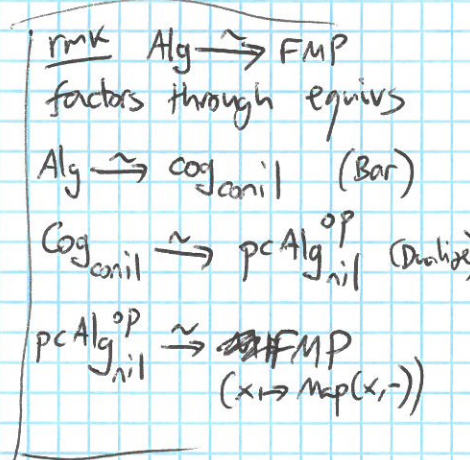 rmk Alg ~→ FMP
factors through equivs
Alg ~→ cog_conil (Bar)
Cog_conil ~→ pcAlg^op_nil (Dualize)
pcAlg^op_nil ~→ FMP
(x ↦ Map(x,-))